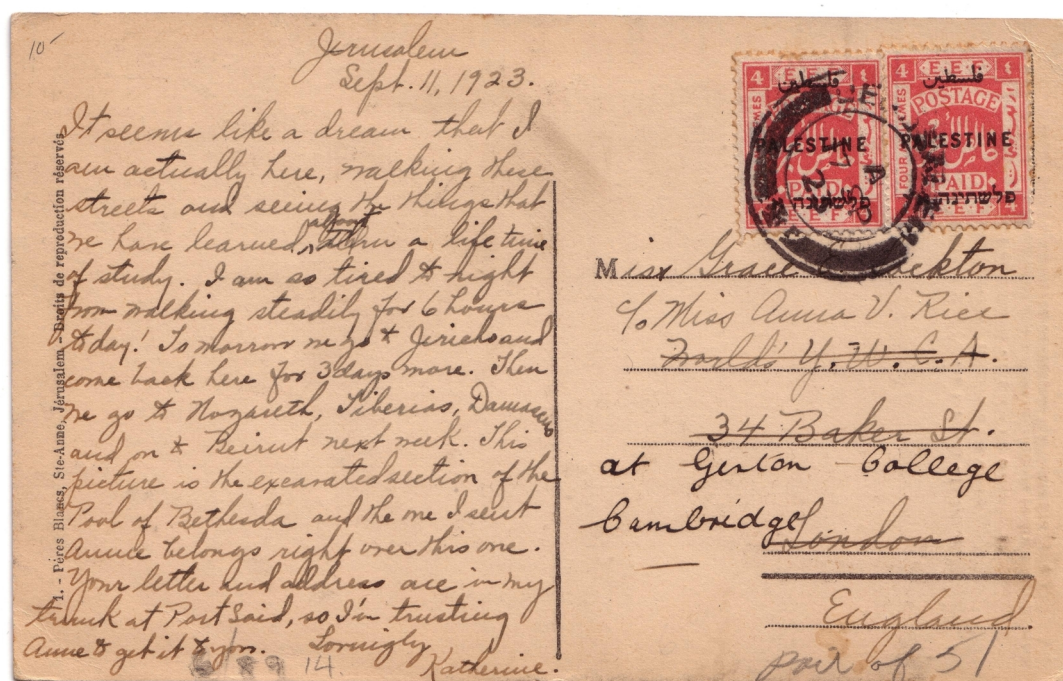 10-
Jerusalem
Sept. 11, 1923.
It seems like a dream that I
am actually here, walking these
streets and seeing the things that
we have learned, without a life time
of study. I am so tired to night
from walking steadily for 6 hours
today! Tomorrow we go to Jericho and
come back here for 3 days more. Then
we go to Nazareth, Tiberias, Damascus
and on to Beirut next week. This
picture is the excavated section of the
Pool of Bethesda and the one I sent
Anne belongs right over this one.
Your letter and address are in my
trunk at Port Said, so I'm trusting
Anne to get it to you.
Lovingly
Katherine.
14
1. - Pères Blancs, Ste-Anne, Jérusalem - Droits de reproduction réservés.
4 E.E.F. ٤
فلسطين
POSTAGE
PALESTINE
PAID
פלשתינה
E.E.F.
4 E.E.F. ٤
فلسطين
POSTAGE
PALESTINE
FOUR
PAID
פלשתינה
E.E.F. 4
Miss Grace
c/o Miss Anna V. Rice
World's Y.W.C.A.
34 Baker St.
at Girton College
Cambridge
London
England.
part of 51